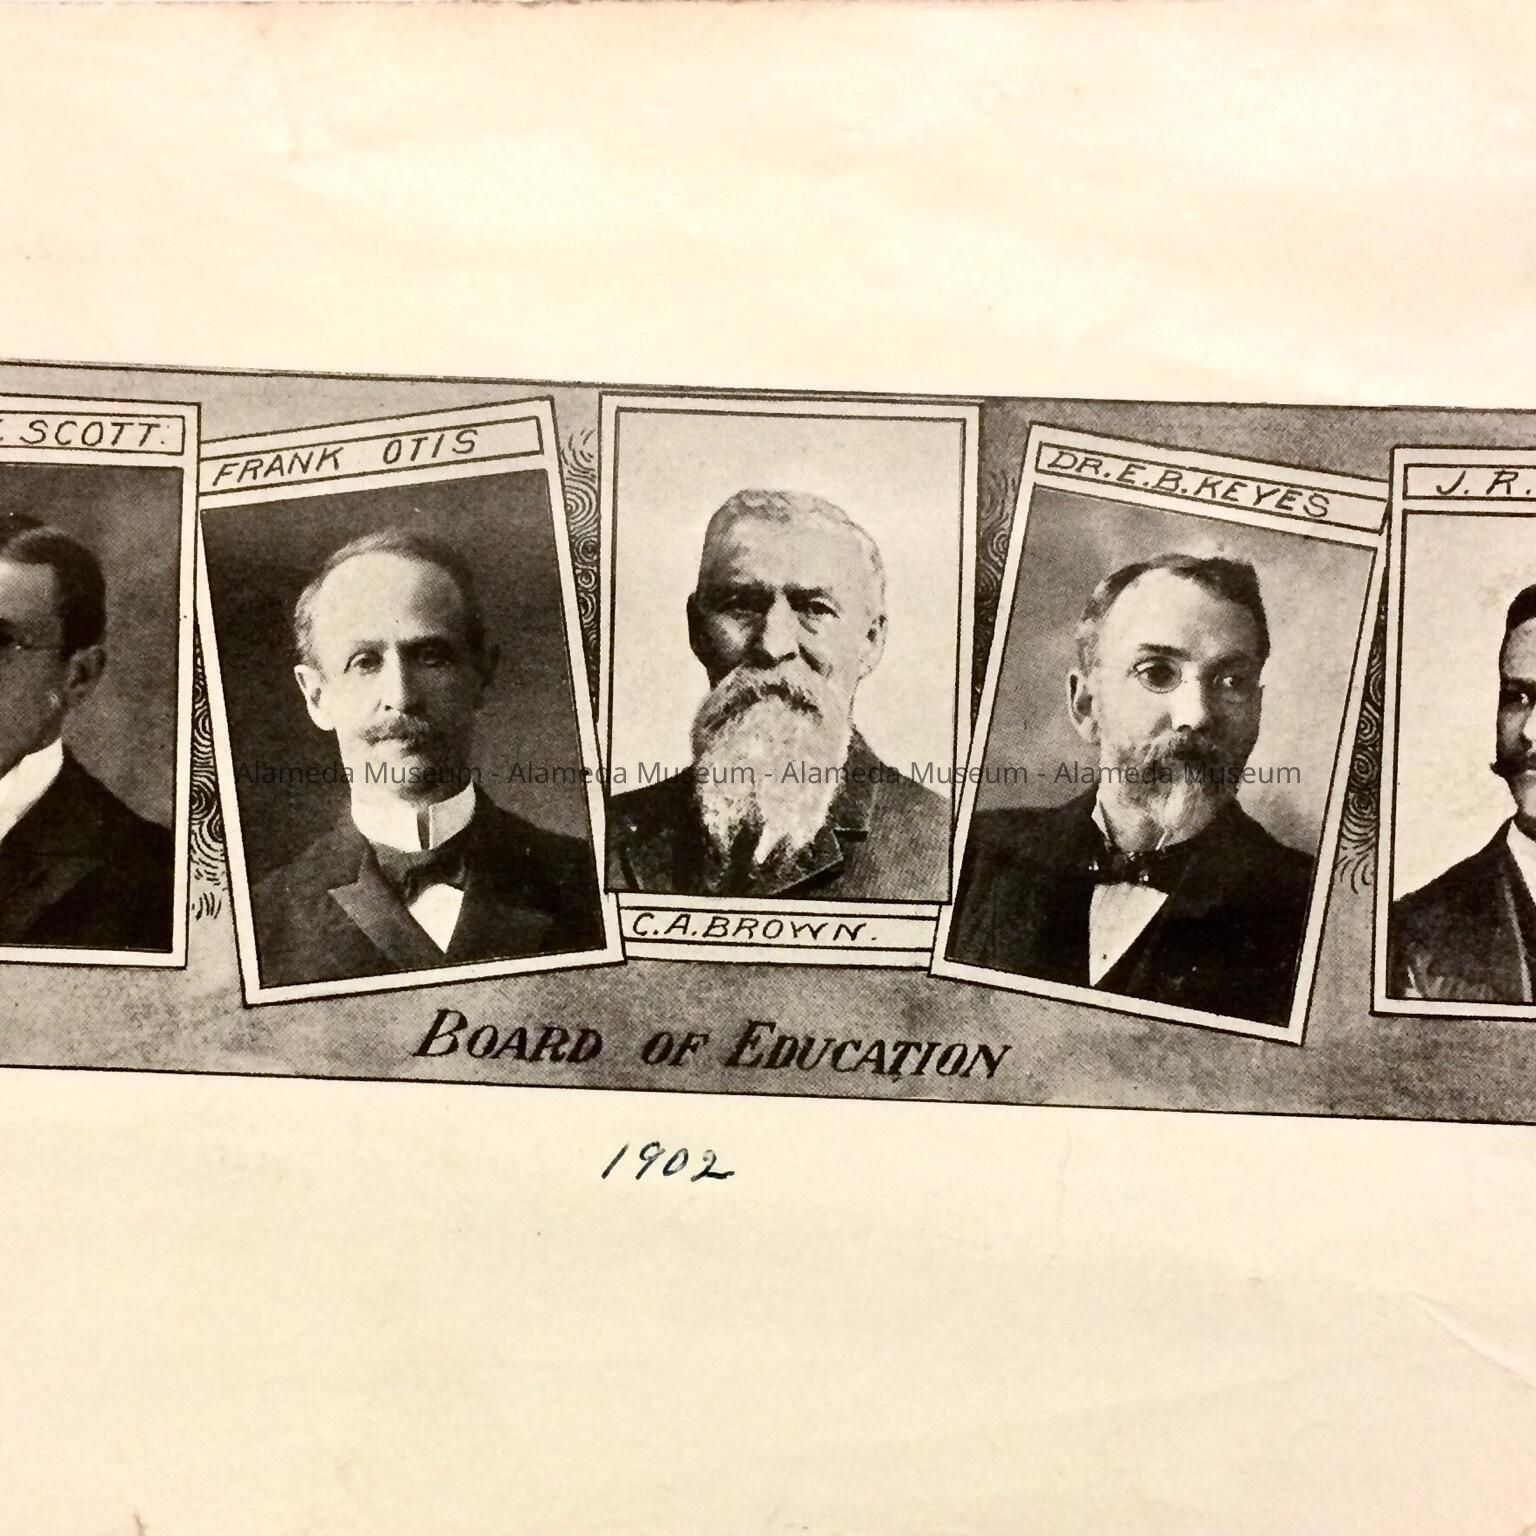 SCOTT.
FRANK OTIS
C.A.BROWN.
DR.E.B.KEYES
J. R.
Alameda Museum - Alameda Museum - Alameda Museum - Alameda Museum
BOARD OF EDUCATION
1902